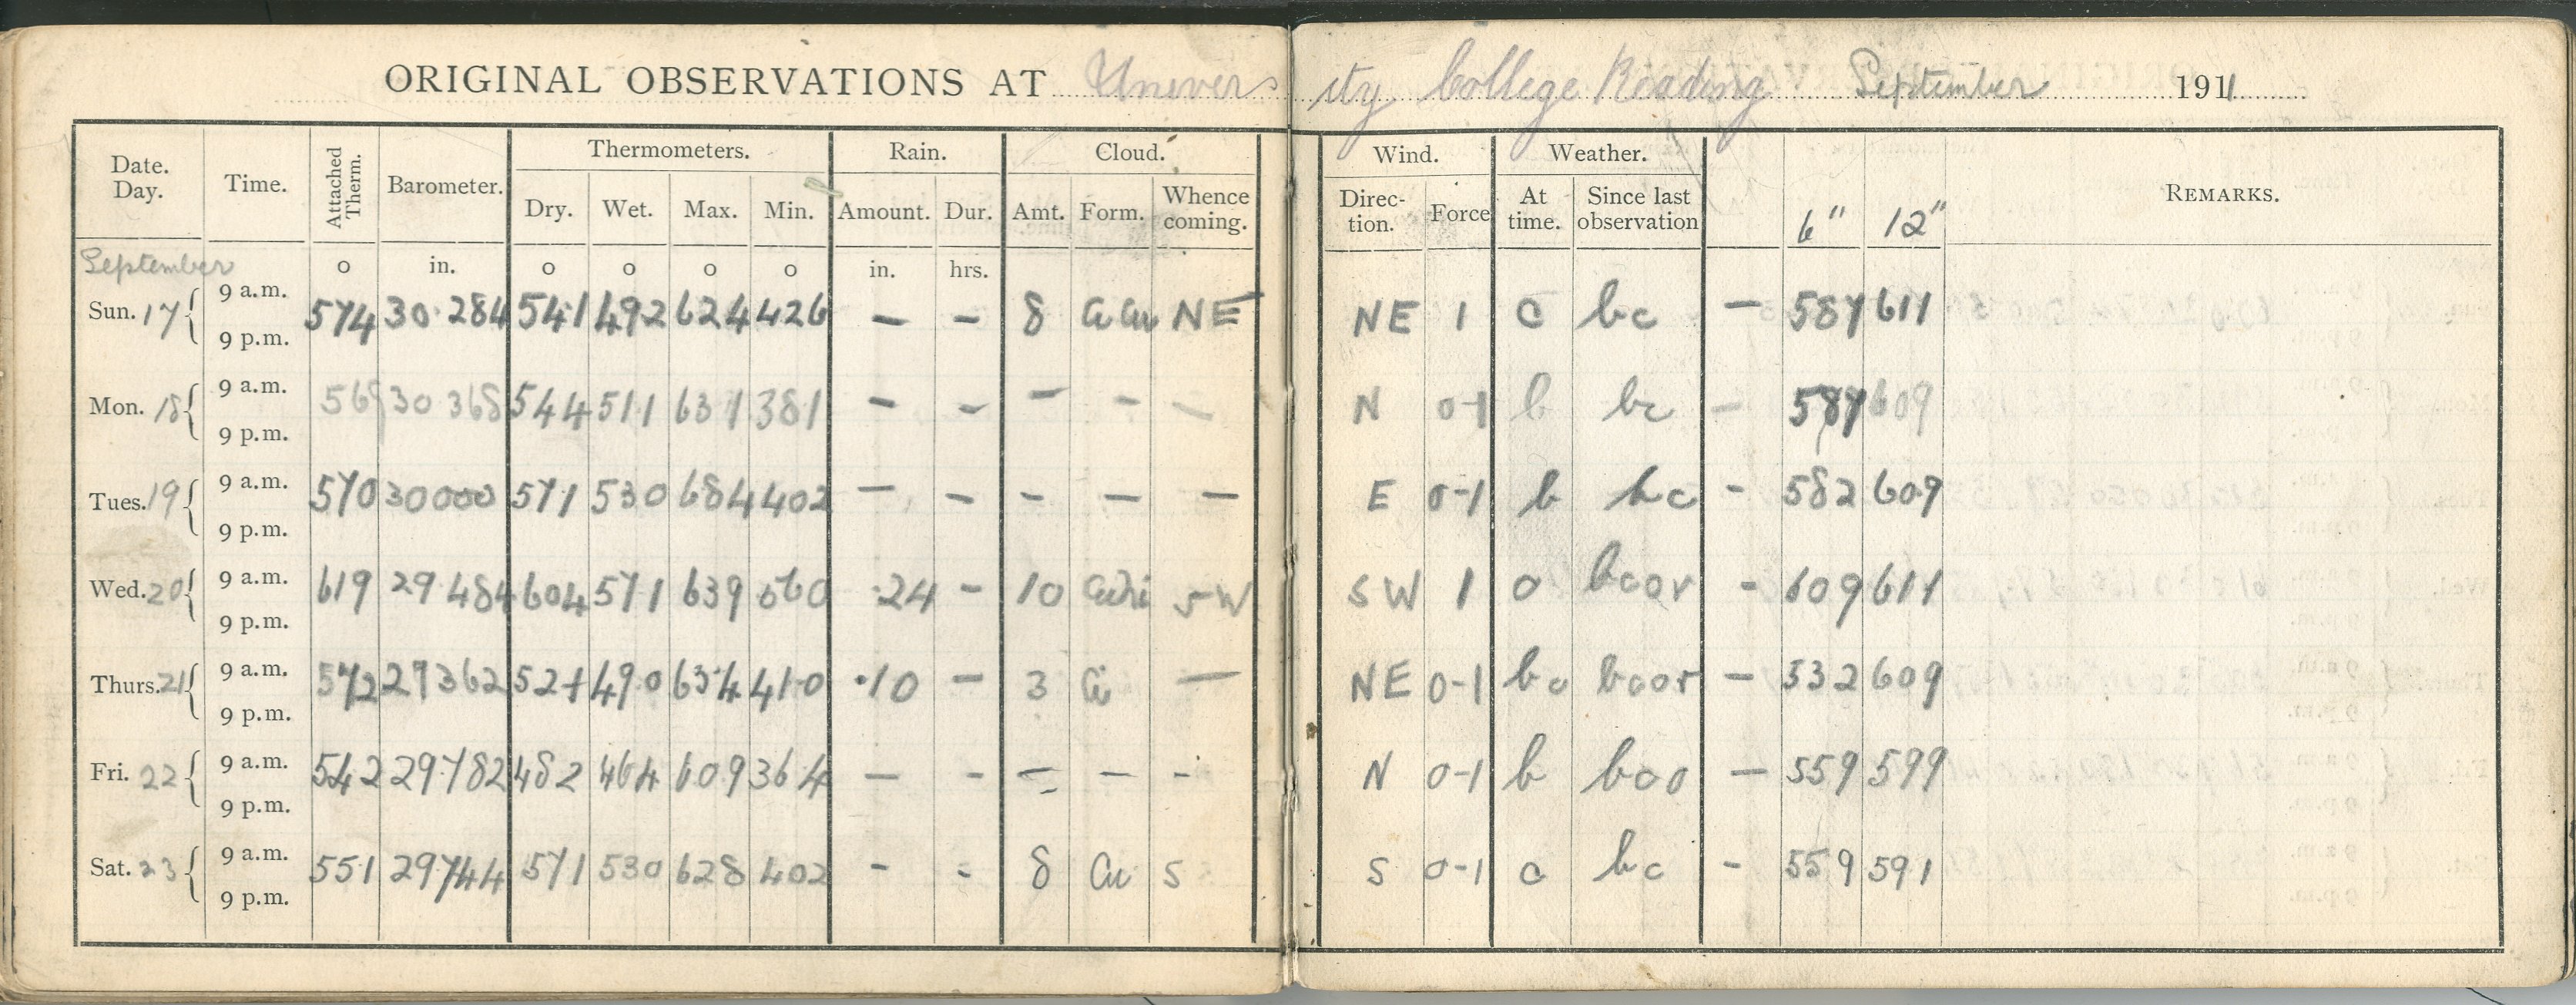 ORIGINAL OBSERVATIONS AT University College Reading September 1911
Date. Day. Time. Attached Therm. Barometer. Thermometers. Rain. Cloud. Wind. Weather. REMARKS.
Dry. Wet. Max. Min. Amount. Dur. Amt. Form. Whence coming. Direc- tion. Force At time. Since last observation 6" 12"
September o in. o o o o in. hrs.
Sun. 17 9 a.m. 574 30.284 541 492 624 426 — — 8 Ci Cu NE NE 1 c bc — 587 611
9 p.m.
Mon. 18 9 a.m. 569 30 368 544 511 631 381 — — — — — N 0-1 b bc — 587 609
9 p.m.
Tues. 19 9 a.m. 570 30000 571 530 684 402 — — — — — E 0-1 b bc - 582 609
9 p.m.
Wed. 20 9 a.m. 619 29 484 604 571 639 560 .24 - 10 SW SW 1 o bcor - 609 611
9 p.m.
Thurs. 21 9 a.m. 572 29362 521 490 634 410 .10 — 3 Ci — NE 0-1 bc bcor — 532 609
9 p.m.
Fri. 22 9 a.m. 542 29.782 482 464 609 364 — - — — - N 0-1 b bco — 559 599
9 p.m.
Sat. 23 9 a.m. 551 29744 571 530 628 402 - - 8 Cu S S 0-1 c bc - 559 591
9 p.m.